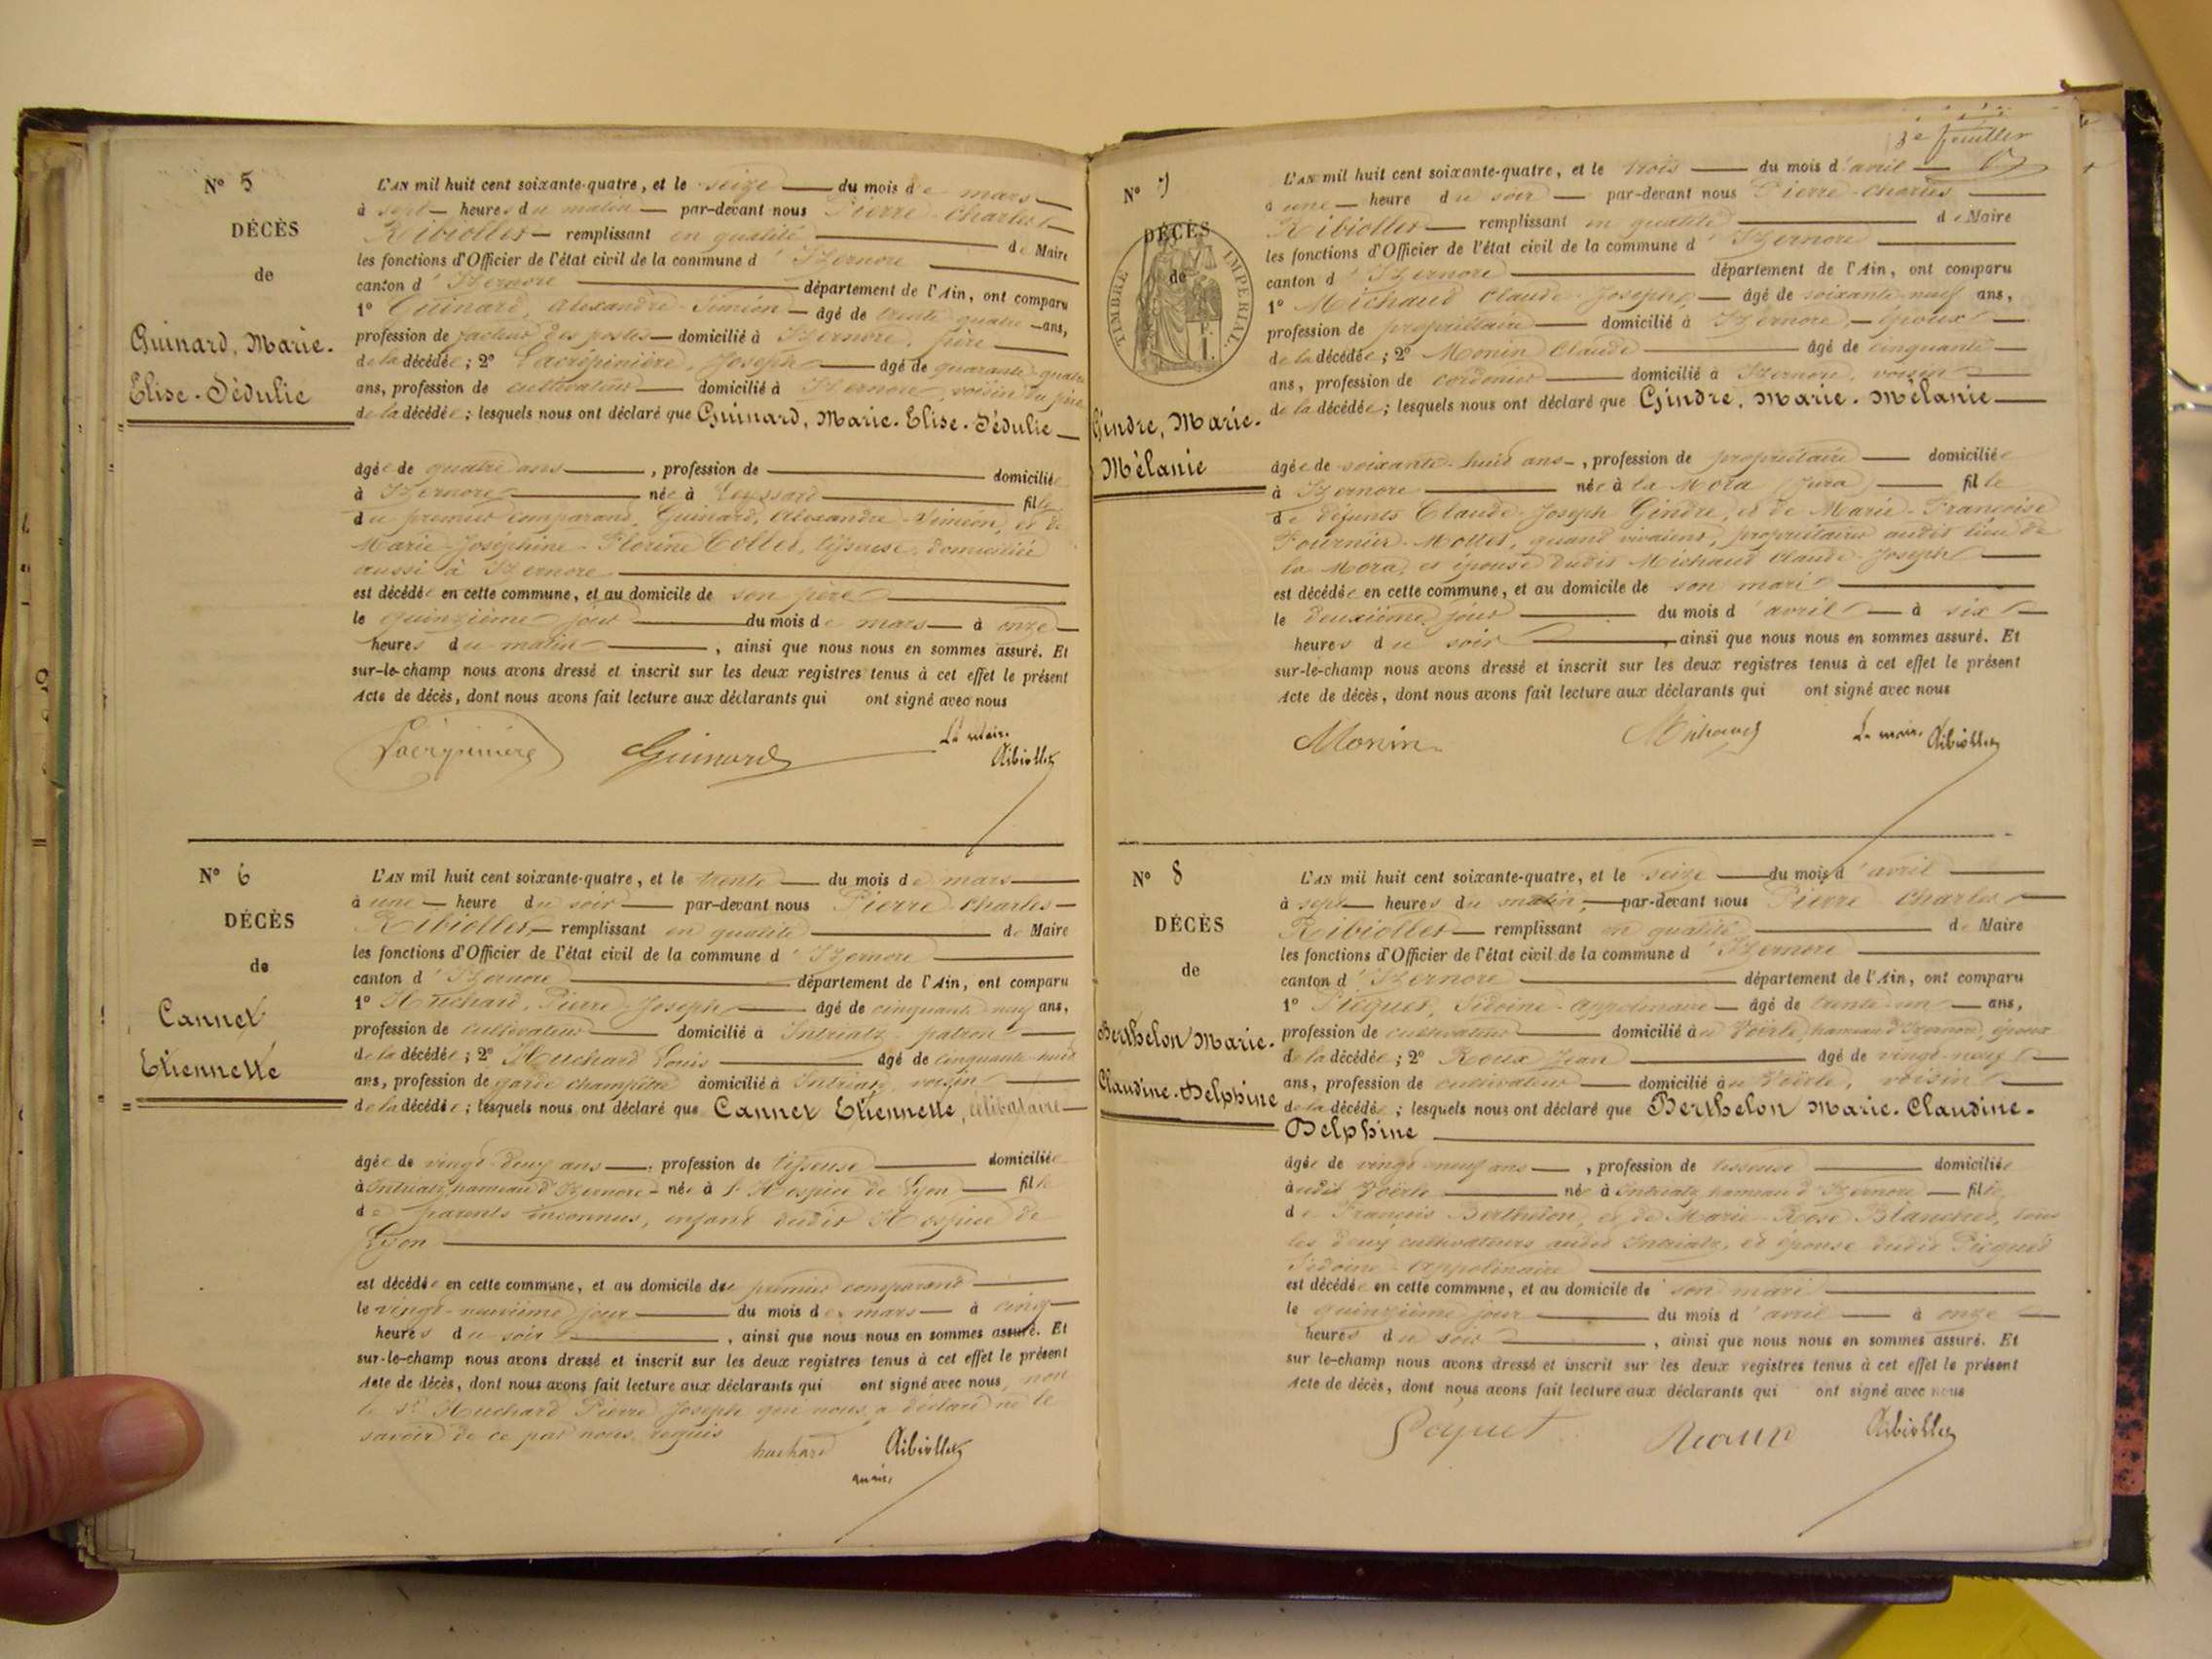 N° 5
DÉCÈS
de
Guinard, Marie.
Elise. Sédulie
L'AN mil huit cent soixante-quatre, et le seize du mois de mars
à sept heures du matin par-devant nous Pierre Charles
Ribiollet remplissant en qualité de Maire
les fonctions d'Officier de l'état civil de la commune d'Izernore
canton d'Izernore département de l'Ain, ont comparu
1° Guinard, Alexandre Siméon âgé de trente quatre ans,
profession de facteur des postes domicilié à Izernore, père
de la décédée; 2° Lacrépinière, Joseph âgé de quarante quatre
ans, profession de cultivateur domicilié à Izernore, voisin du père
de la décédée; lesquels nous ont déclaré que Guinard, Marie. Elise. Sédulie
âgée de quatre ans, profession de domiciliée
à Izernore née à Leyssard fille
du premier comparant, Guinard, Alexandre Siméon, et de
Marie Joséphine Florine Collet, tisseuse, domiciliée
aussi à Izernore
est décédée en cette commune, et au domicile de son père
le quinzième jour du mois de mars à onze
heures du matin, ainsi que nous nous en sommes assuré. Et
sur-le-champ nous avons dressé et inscrit sur les deux registres tenus à cet effet le présent
Acte de décès, dont nous avons fait lecture aux déclarants qui ont signé avec nous
Lacrépinière Guinard Le maire
Ribiollet
N° 6
DÉCÈS
de
Cannet
Etiennette
L'AN mil huit cent soixante-quatre, et le trente du mois de mars
à une heure du soir par-devant nous Pierre Charles
Ribiollet, remplissant en qualité de Maire
les fonctions d'Officier de l'état civil de la commune d'Izernore
canton d'Izernore département de l'Ain, ont comparu
1° Huchard, Pierre Joseph âgé de cinquante neuf ans,
profession de cultivateur domicilié à Intriatz patron
de la décédée; 2° Huchard Louis âgé de cinquante huit
ans, profession de garde champêtre domicilié à Intriatz, voisin
de la décédée; lesquels nous ont déclaré que Cannet Etiennette, célibataire
âgée de vingt deux ans, profession de tisseuse domiciliée
à Intriatz hameau d'Izernore née à l'Hospice de Lyon fille
de parents inconnus, enfant dudit Hospice de
Lyon
est décédée en cette commune, et au domicile du premier comparant
le vingt-neuvième jour du mois de mars à cinq
heures du soir, ainsi que nous nous en sommes assuré. Et
sur-le-champ nous avons dressé et inscrit sur les deux registres tenus à cet effet le présent
Acte de décès, dont nous avons fait lecture aux déclarants qui ont signé avec nous, non
le Sr Huchard Pierre Joseph qui nous a déclaré ne le
savoir de ce par nous requis
huchard Ribiollet
maire
3e feuillet
N° 7
DÉCÈS
de
TIMBRE IMPÉRIAL
Gindre, Marie.
Mélanie
L'AN mil huit cent soixante-quatre, et le trois du mois d'avril
à une heure du soir par-devant nous Pierre Charles
Ribiollet remplissant en qualité de Maire
les fonctions d'Officier de l'état civil de la commune d'Izernore
canton d'Izernore département de l'Ain, ont comparu
1° Michaud Claude Joseph âgé de soixante neuf ans,
profession de propriétaire domicilié à Izernore, époux
de la décédée; 2° Monin Claude âgé de cinquante
ans, profession de cordonier domicilié à Izernore, voisin
de la décédée; lesquels nous ont déclaré que Gindre, Marie. Mélanie
âgée de soixante huit ans, profession de propriétaire domiciliée
à Izernore née à la Mora (Jura) fille
de défunts Claude Joseph Gindre, et de Marie Françoise
Fournier Mottet, quand vivaient, propriétaires audit lieu de
la Mora, et épouse dudit Michaud Claude Joseph
est décédée en cette commune, et au domicile de son mari
le deuxième jour du mois d'avril à six
heures du soir, ainsi que nous nous en sommes assuré. Et
sur-le-champ nous avons dressé et inscrit sur les deux registres tenus à cet effet le présent
Acte de décès, dont nous avons fait lecture aux déclarants qui ont signé avec nous
Monin Michaud Le maire Ribiollet
N° 8
DÉCÈS
de
Berthelon Marie.
Claudine. Delphine
L'AN mil huit cent soixante-quatre, et le seize du mois d'avril
à sept heures du matin, par-devant nous Pierre Charles
Ribiollet remplissant en qualité de Maire
les fonctions d'Officier de l'état civil de la commune d'Izernore
canton d'Izernore département de l'Ain, ont comparu
1° Picquet, Sidoine Appolinaire âgé de trente un ans,
profession de cultivateur domicilié au Voërle, hameau d'Izernore, époux
de la décédée; 2° Roux Jean âgé de vingt-neuf
ans, profession de cultivateur domicilié au Voërle, voisin
de la décédée; lesquels nous ont déclaré que Berthelon Marie. Claudine.
Delphine
âgée de vingt neuf ans, profession de tisseuse domiciliée
audit Voërle née à Intriatz hameau d'Izernore fille
de François Berthelon, et de Marie Rose Blanchet, tous
les deux cultivateurs audit Intriatz, et épouse dudit Picquet
Sidoine Appolinaire
est décédée en cette commune, et au domicile de son mari
le quinzième jour du mois d'avril à onze
heures du soir, ainsi que nous nous en sommes assuré. Et
sur le-champ nous avons dressé et inscrit sur les deux registres tenus à cet effet le présent
Acte de décès, dont nous avons fait lecture aux déclarants qui ont signé avec nous
Piquet Roux Ribiollet